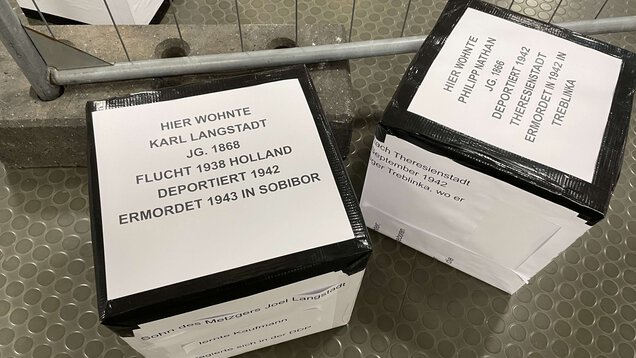 HIER WOHNTE
KARL LANGSTADT
JG. 1868
FLUCHT 1938 HOLLAND
DEPORTIERT 1942
ERMORDET 1943 IN SOBIBOR
Sohn des Metzgers Joel Langstadt
lernte Kaufmann
sich in der DDP
HIER WOHNTE
PHILIPP NATHAN
JG. 1866
DEPORTIERT 1942
THERESIENSTADT
ERMORDET IN 1942 IN
TREBLINKA
nach Theresienstadt
September 1942
ger Treblinka, wo er